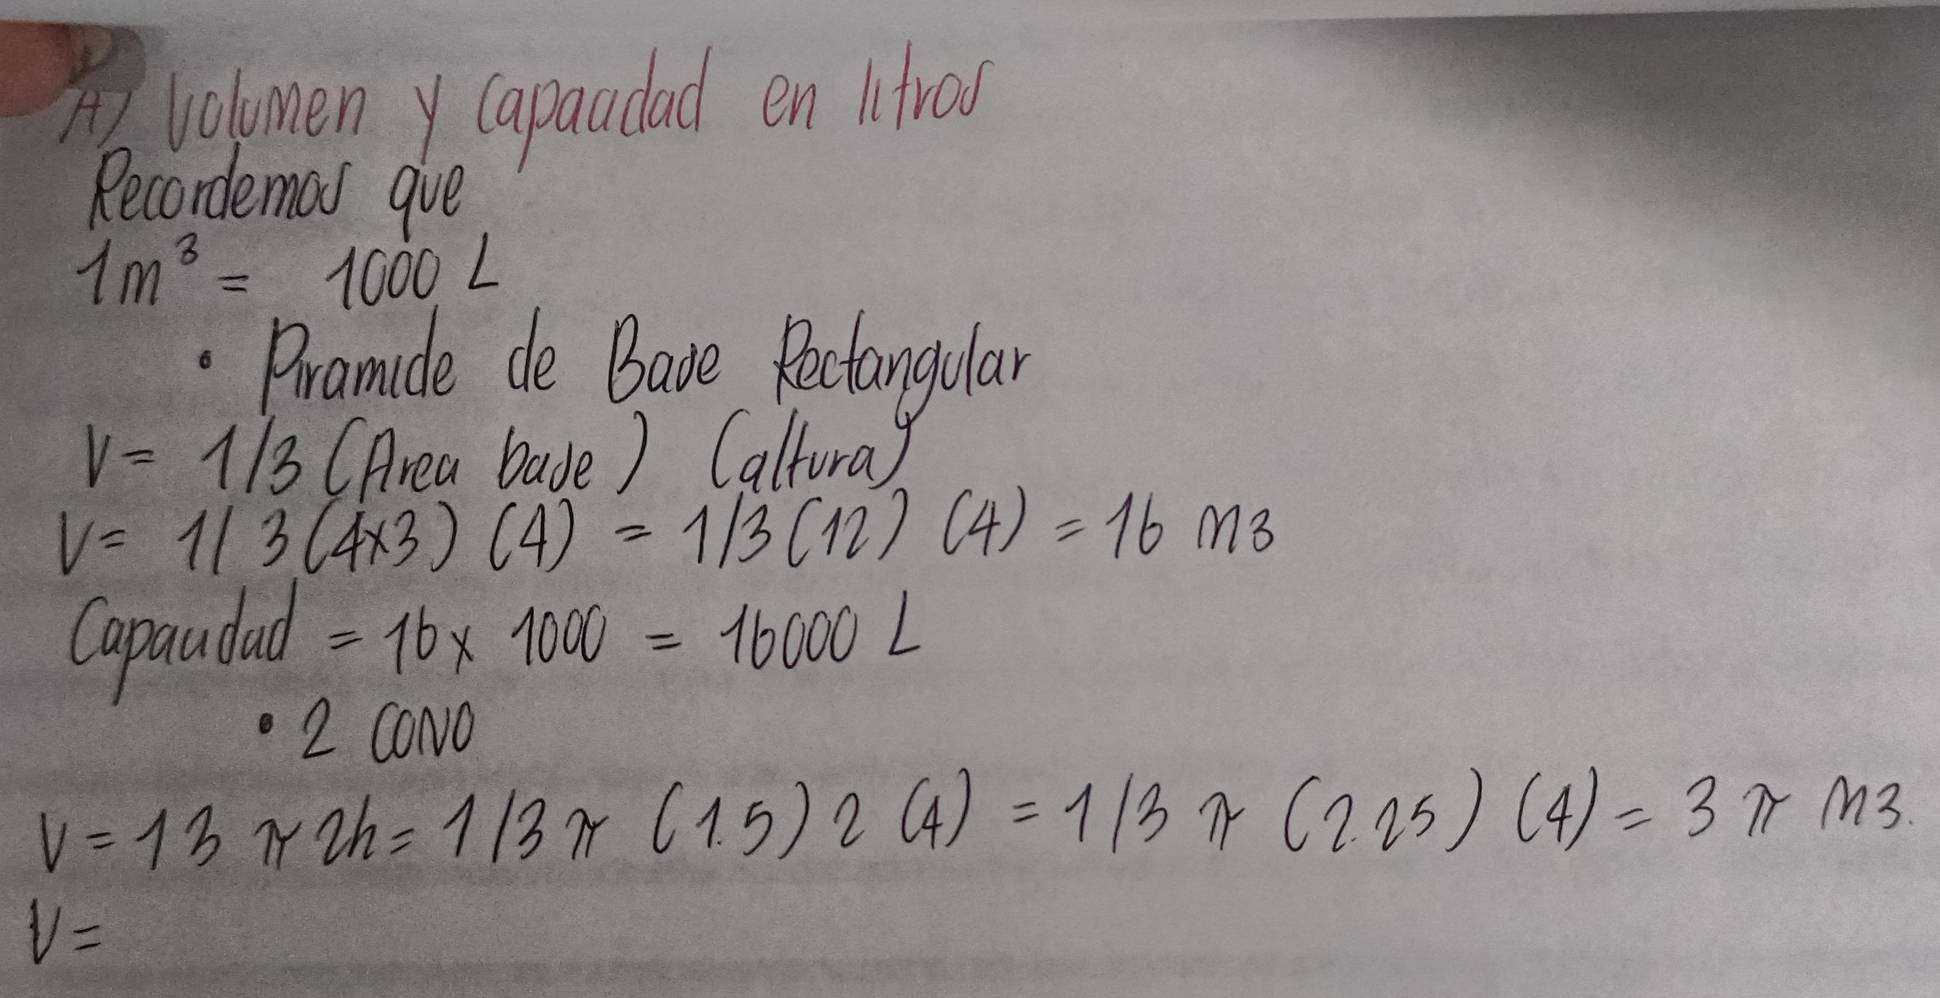 A) Volumen y capacidad en litros
Recordemos que
1m³ = 1000 L
• Piramide de Base Rectangular
V = 1/3 (Area base) (altura)
V = 1/3 (4x3) (4) = 1/3 (12) (4) = 16 m3
Capacidad = 16 x 1000 = 16000 L
• 2 CONO
V = 13 π 2h = 1/3 π (1.5) 2 (4) = 1/3 π (2.25) (4) = 3 π m3.
V =